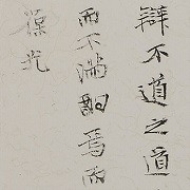 辯不道之道
而不滿酌焉而
葆光